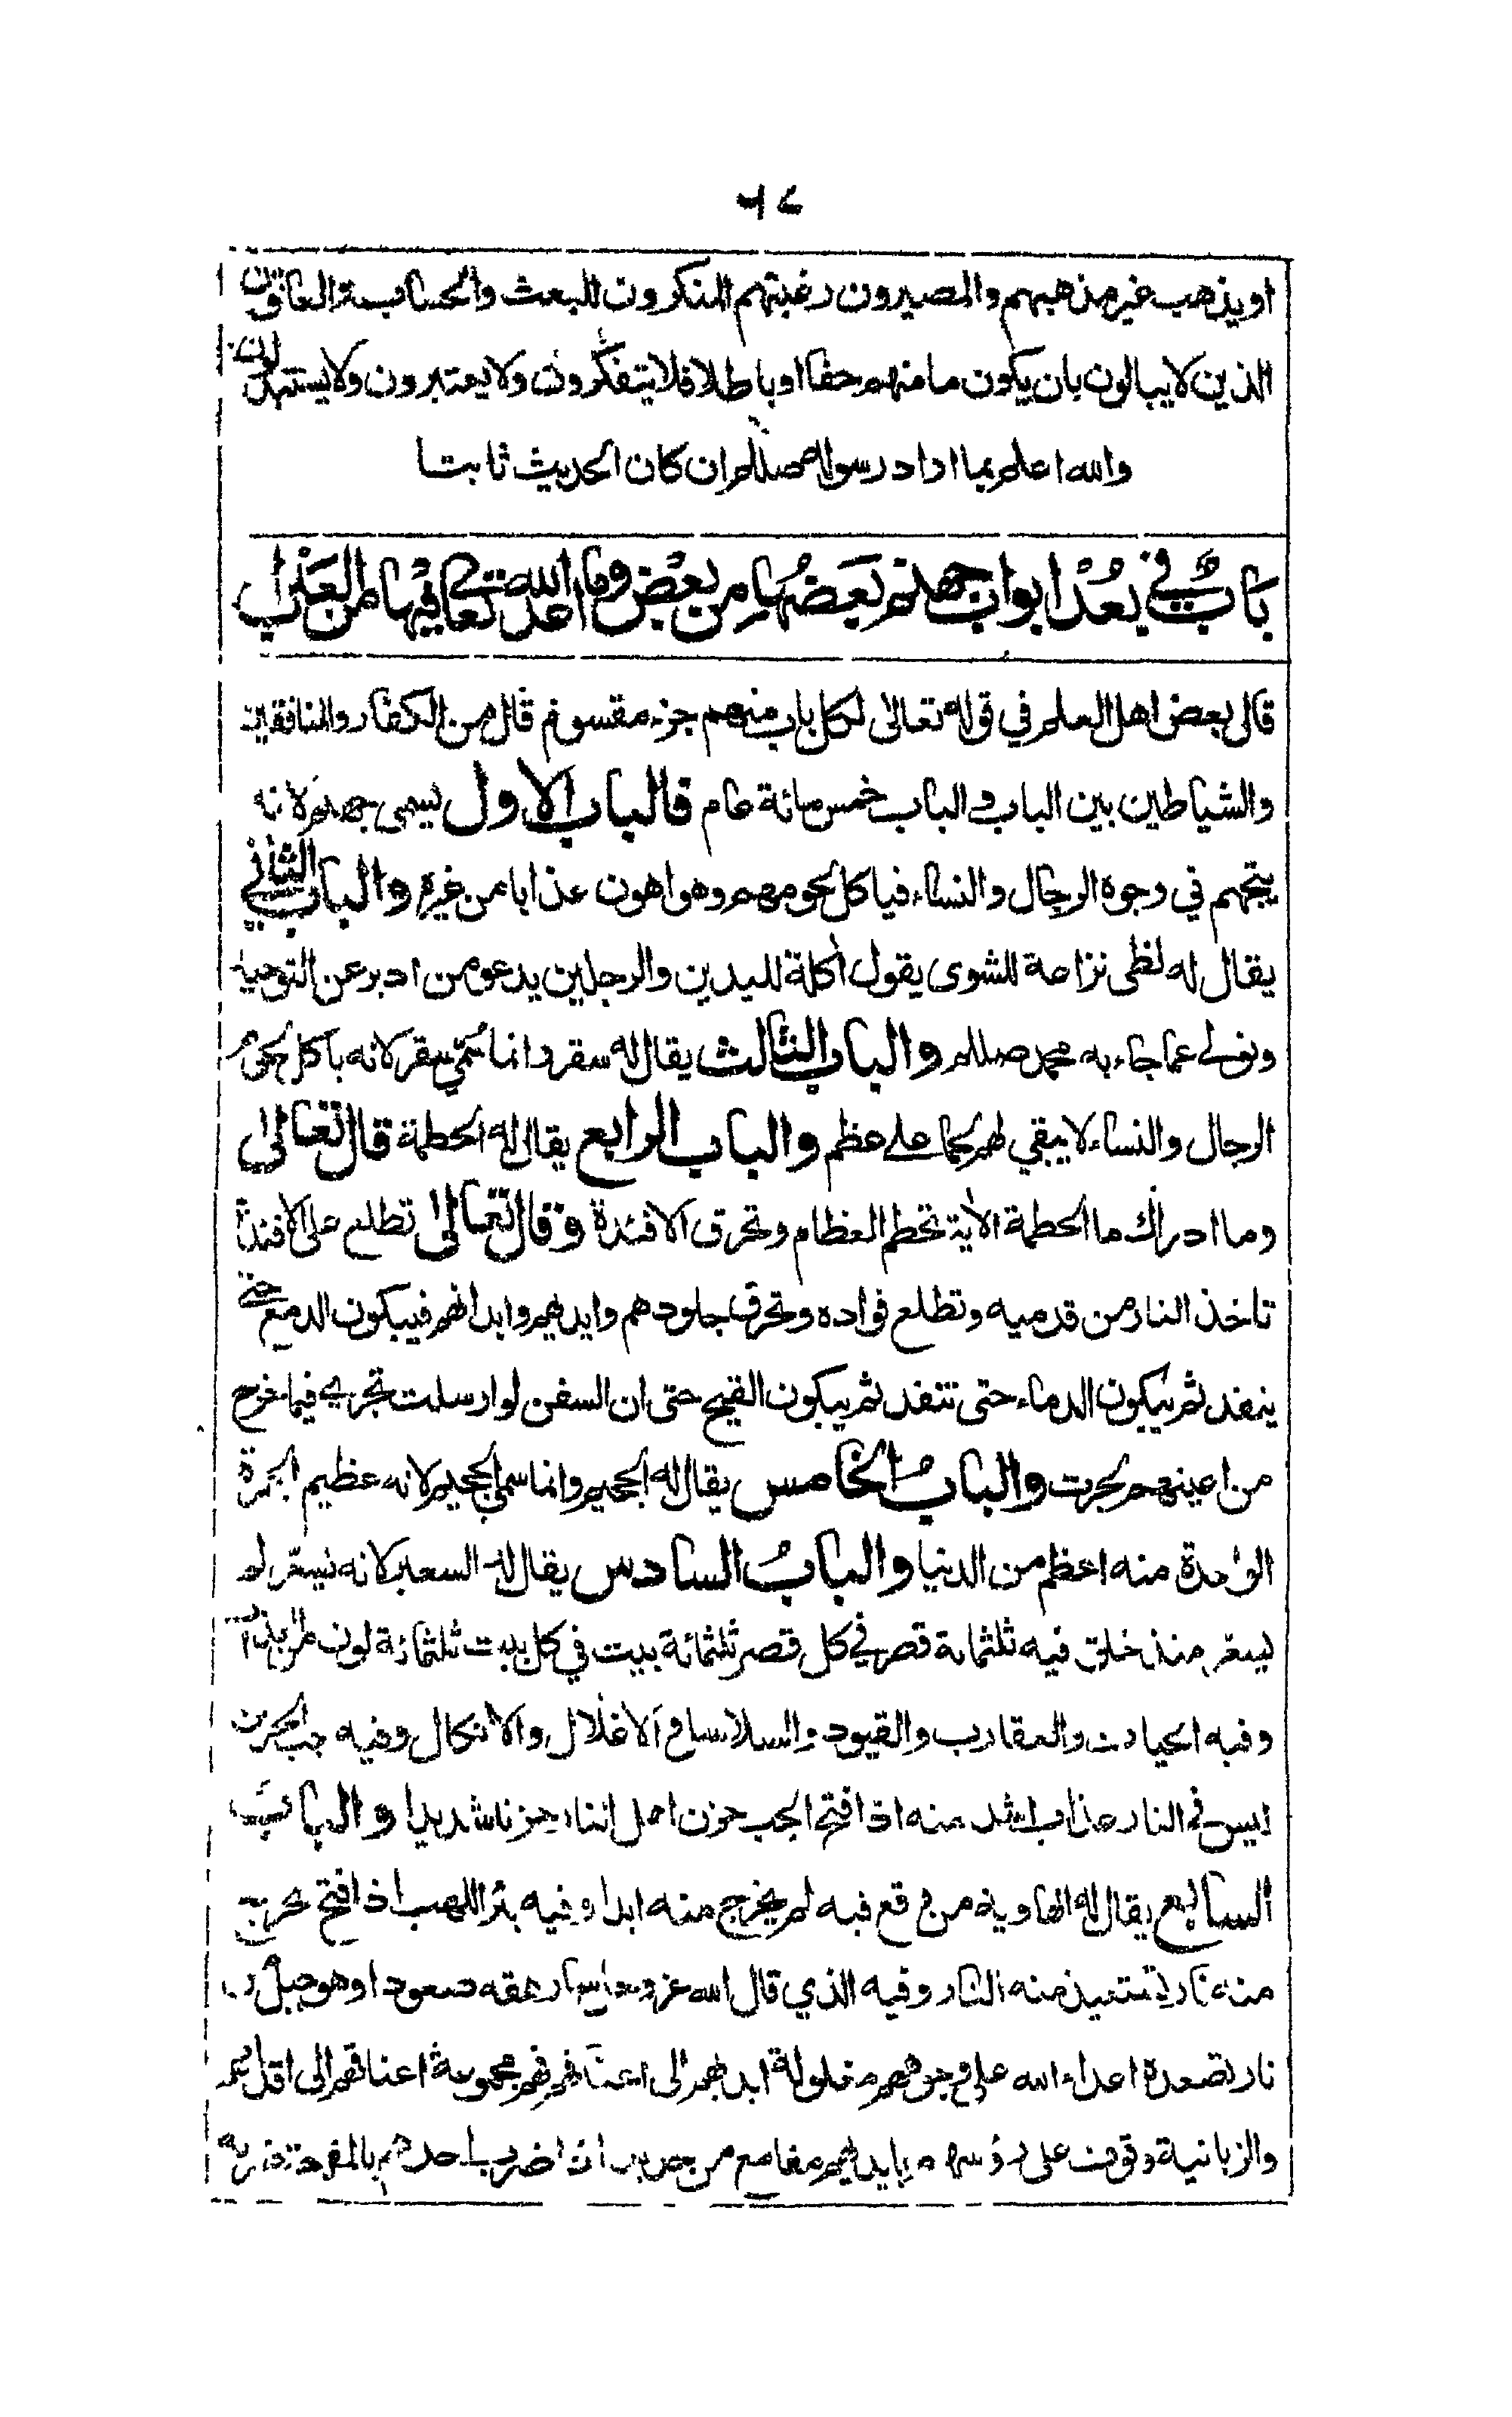 او يذهب غير مذهبهم والمصيرون رغبتهم المنكرون للبعث والحساب
الذين لا يبالون بان يكون ما منهم حقا او باطلا فلا يتفكرون ولا يعتبرون ولا يستدلون
والله اعلم بما اراد رسوله صللم ان كان الحديث ثابتا
باب في بعد ابواب جهنم بعضها من بعض وما اعد الله تعالى فيها من العذاب
قال بعض اهل العلم في قوله تعالى لكل باب منهم جزء مقسوم قال من الكفار والمنافقين
والشياطين بين الباب والباب خمس مائة عام فالباب الاول يسمى جهنم لانه
يتجهم في وجوه الرجال والنساء فياكل لحومهم وهو اهون عذابا من غيره والباب الثاني
يقال له لظى نزاعة للشوى يقول أكلة لليدين والرجلين يدعو من ادبر عن التوحيد
وتولى عما جاء به محمد صللم والباب الثالث يقال له سقر وانما سمي سقر لانه ياكل لحوم
الرجال والنساء لا يبقي لهم لحما على عظم والباب الرابع يقال له الحطمة قال تعالى
وما ادراك ما الحطمة الآية تحطم العظام وتحرق الافئدة وقال تعالى تطلع على الافئدة
تاخذ النار من قدميه وتطلع فواده وتحرق جلودهم وايديهم وابدانهم فيبكون الدمع حتى
ينفد ثم يبكون الدماء حتى تنفد ثم يبكون القيح حتى ان السفن لو ارسلت تجري فيما خرج
من اعينهم لجرت والباب الخامس يقال له الجحيم وانما سمي الجحيم لانه عظيم الجمرة
الواحدة منه اعظم من الدنيا والباب السادس يقال له السعير لانه يسعر لم
يسعر منذ خلق فيه ثلثمائة قصر في كل قصر ثلثمائة بيت في كل بيت ثلثمائة لون من العذاب
وفيه الحيات والعقارب والقيود والسلاسل والاغلال والانكال وفيه جب الحزن
ليس في النار عذاب اشد منه اذا فتح الجب حزن اهل النار حزنا شديدا والباب
السابع يقال له الهاوية من وقع فيه لم يخرج منه ابدا وفيه بئر اللهب اذا فتح يخرج
منه نار تستعيذ منه النار وفيه الذي قال الله عز وجل سارهقه صعودا وهو جبل من
نار تصعده اعداء الله على وجوههم مغلولة ايديهم الى اعناقهم مجموعة اعناقهم الى اقدامهم
والزبانية وقوف على رؤسهم بايديهم مقامع من حديد اذا ضرب احدهم بالمقمعة ضربه